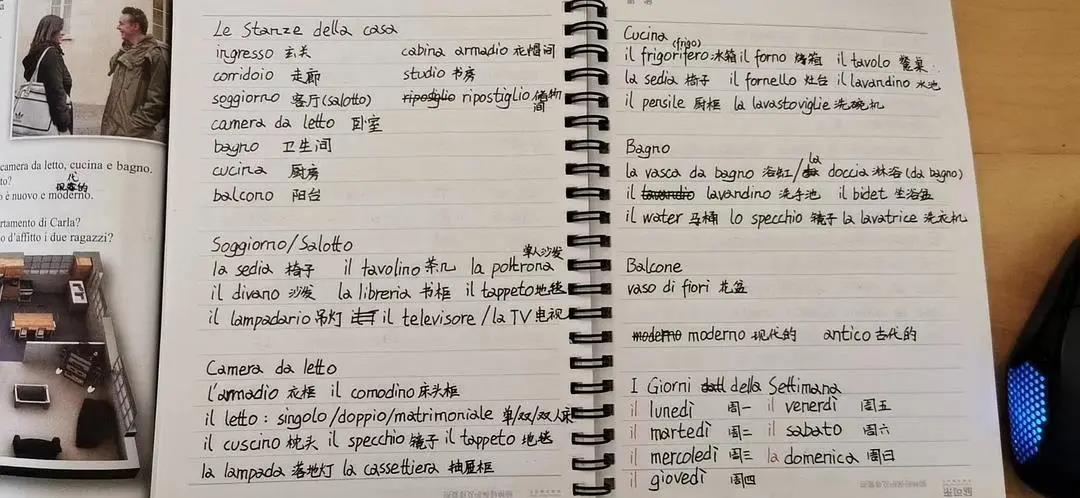 camera da letto, cucina e bagno.
to?
现代的
è nuovo e moderno.
rtamento di Carla?
o d'affitto i due ragazzi?
Le Stanze della casa
ingresso 玄关 cabina armadio 衣帽间
corridoio 走廊 studio 书房
soggiorno 客厅(salotto) ripostiglio ripostiglio 储物间
camera da letto 卧室
bagno 卫生间
cucina 厨房
balcono 阳台
Soggiorno/Salotto
la sedia 椅子 il tavolino 茶几 la poltrona 单人沙发
il divano 沙发 la libreria 书柜 il tappeto 地毯
il lampadario 吊灯 il televisore/la TV 电视
Camera da letto
l'armadio 衣柜 il comodino 床头柜
il letto: singolo/doppio/matrimoniale 单/双/双人床
il cuscino 枕头 il specchio 镜子 il tappeto 地毯
la lampada 落地灯 la cassettiera 抽屉柜
Cucina
il frigorifero (frigo) 冰箱 il forno 烤箱 il tavolo 餐桌
la sedia 椅子 il fornello 灶台 il lavandino 水池
il pensile 厨柜 la lavastoviglie 洗碗机
Bagno
la vasca da bagno 浴缸/la doccia 淋浴(da bagno)
il lavandino 洗手池 il bidet 坐浴盆
il water 马桶 lo specchio 镜子 la lavatrice 洗衣机
Balcone
vaso di fiori 花盆
moderno moderno 现代的 antico 古代的
I Giorni della Settimana
il lunedì 周一 il venerdì 周五
il martedì 周二 il sabato 周六
il mercoledì 周三 la domenica 周日
il giovedì 周四